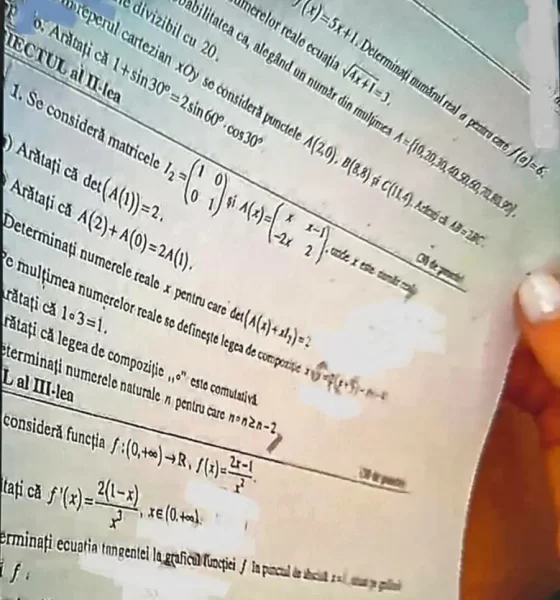 f(x)=5x+1. Determinați numărul real a pentru care f(a)=6.
numerelor reale ecuația √4x+1=3.
babilitatea ca, alegând un număr din mulțimea A={10,20,30,40,50,60,70,80,90},
divizibil cu 20.
reperul cartezian xOy se consideră punctele A(2,0), B(8,8) și C(11,4). Arătați că AB=2BC.
6. Arătați că 1+sin30°=2sin60°·cos30°.
IECTUL al II-lea
1. Se consideră matricele I₂=(1 0 0 1) și A(x)=(x x-1 -2x 2), unde x este număr real.
) Arătați că det(A(1))=2.
Arătați că A(2)+A(0)=2A(1).
Determinați numerele reale x pentru care det(A(x)+xI₂)=2
Pe mulțimea numerelor reale se definește legea de compoziție
Arătați că 1∘3=1.
rătați că legea de compoziție „∘" este comutativă.
eterminați numerele naturale n pentru care n∘n≥n-2
L al III-lea
consideră funcția f:(0,+∞)→R, f(x)=2x-1/x².
tați că f'(x)=2(1-x)/x³, x∈(0,+∞).
erminați ecuația tangentei la graficul funcției f în punctul de abscisă
f.